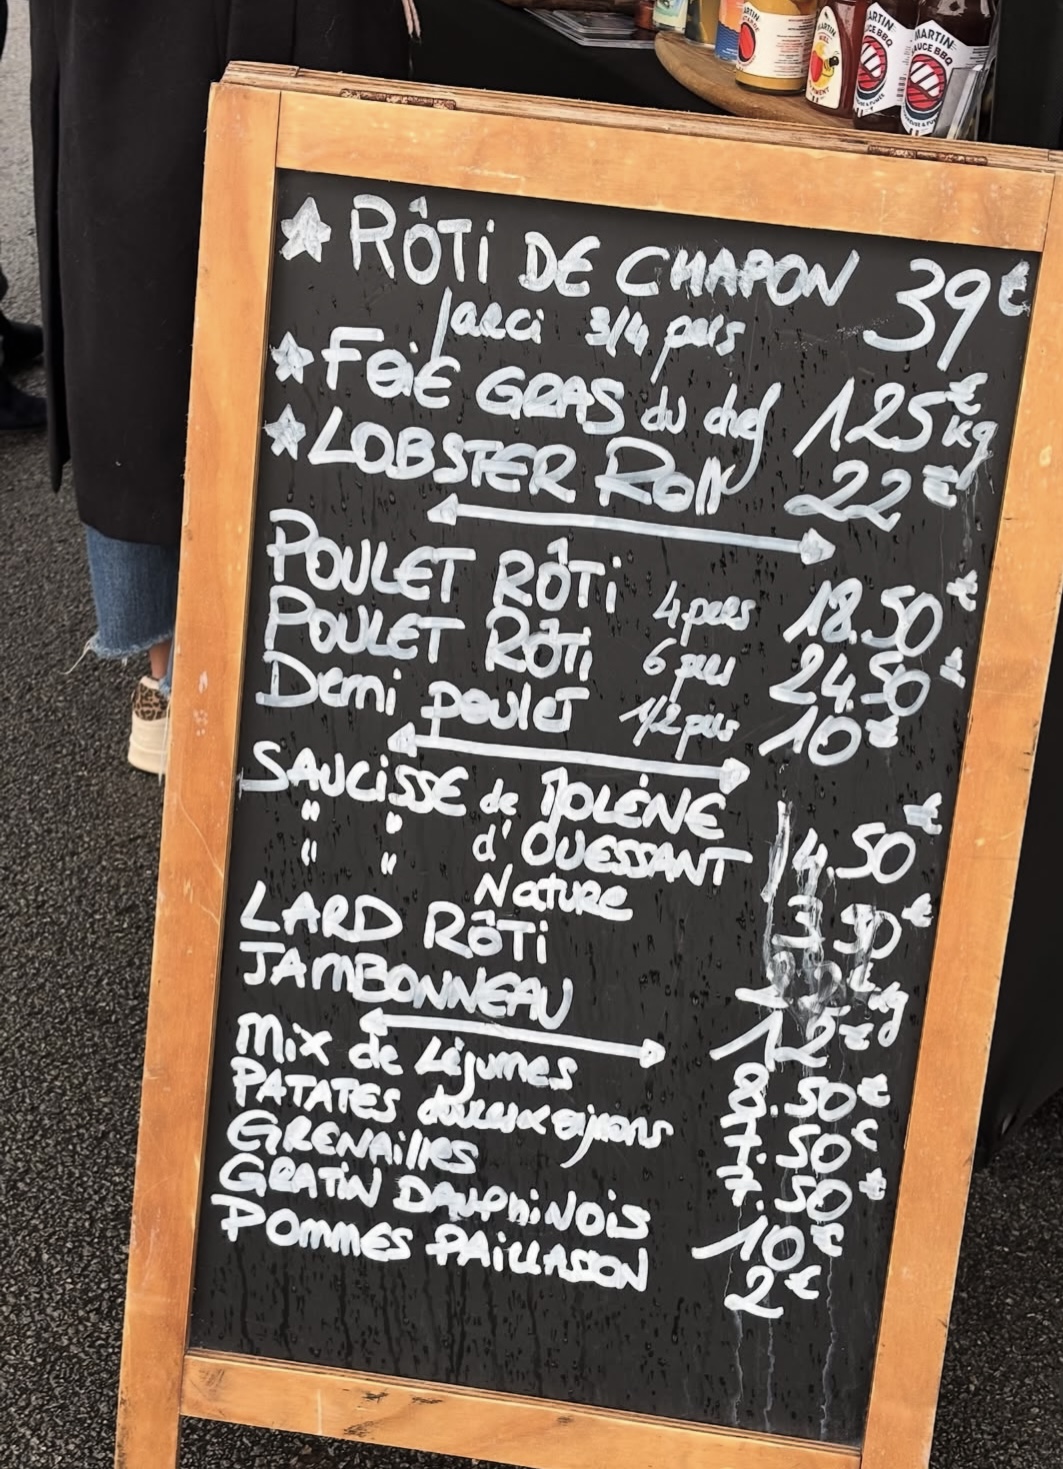 MARTIN
MARTIN
SAUCE BBQ
MARTIN
SAUCE BBQ
RÔTi DE CHAPON 39€
farci 3/4 pers
FOiE GRAS du chef 125€ kg
LOBSTER Roll 22€
POULET RÔTi 4 pers 18.50€
POULET RÔTi 6 pers 24.50€
Demi poulet 1/2 pers 10€
SAUCiSSE de MOLÈNE
" " d'OUESSANT 4.50€
" " Nature
LARD RÔTi 3.90€
JAMBONNEAU kg
12€
Mix de Légumes 8.50€
PATATES douces x oignons 7.50€
GRENAiLLES 7.50€
GRATiN DAUPhiNOiS 10€
POMMES PAiLLASSON 2€